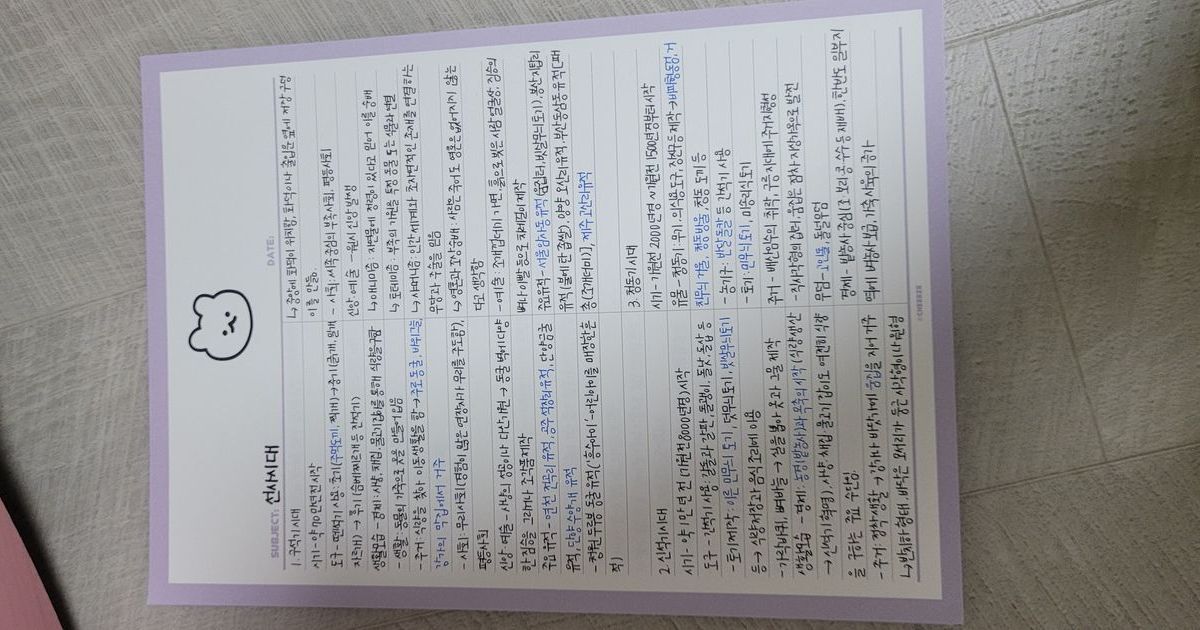 SUBJECT: 선사시대
DATE:
1. 구석기 시대
시기 - 약 70만년 전 시작
도구 - 뗀석기 사용: 초기(주먹도끼, 찍개) → 중기(긁개, 밀개
자르개) → 후기 (슴베찌르개 등 잔석기)
생활모습 - 경제: 사냥, 채집, 물고기잡이를 통해 식량을 구함
- 생활: 동물의 가죽으로 옷을 만들어 입음
- 주거: 식량을 찾아 이동생활을 함 → 주로 동굴, 바위그늘,
강가의 막집에서 거주
- 사회: 무리사회(경험이 많은 연장자가 무리를 주도함),
평등사회
신앙·예술 - 사냥의 성공이나 다산 기원 → 동굴 벽에 다양
한 짐승을 그리거나 조각품 제작
주요 유적 - 연천 전곡리 유적, 공주 석장리 유적, 단양 금굴
유적, 단양 수양개 유적
- 청원 두루봉 동굴 유적('흥수아이' - 어린아이를 매장한 흔
적)
2. 신석기시대
시기 - 약 1만년 전 (기원전 8000년경) 시작
도구 - 간석기 사용: 갈돌과 갈판, 돌괭이, 돌낫, 돌삽 등
- 토기 제작: 이른 민무늬 토기, 덧무늬 토기, 빗살무늬토기
등 → 식량 저장과 음식 조리에 이용
- 가락바퀴, 뼈바늘 → 실을 뽑아 옷과 그물 제작
생활모습 - 경제: 농경(밭농사)과 목축의 시작 (식량 생산
→ 신석기 혁명), 사냥·채집·물고기잡이도 여전히 식량
을 구하는 주요 수단임.
- 주거: 정착생활 → 강가나 바닷가에 움집을 지어 거주
↳ 반지하 형태, 바닥은 모서리가 둥근 사각형이나 원형
↳ 중앙에 화덕이 위치함, 화덕이나 출입문 옆에 저장 구덩
이를 만듦.
- 사회: 씨족 중심의 부족사회, 평등사회
신앙·예술 - 원시 신앙 발생
↳ 애니미즘: 자연물에 정령이 있다고 믿어 이를 숭배
↳ 토테미즘: 부족의 기원을 특정 동물 또는 식물과 연결
↳ 샤머니즘: 인간 세계와 초자연적인 존재를 연결하는
무당과 주술을 믿음
↳ 영혼과 조상 숭배: 사람은 죽어도 영혼은 없어지지 않는
다고 생각함
- 예술: 조개껍데기 가면, 흙으로 빚은 사람 얼굴상, 짐승의
뼈나 이빨 등으로 치레걸이 제작
주요유적 - 서울 암사동 유적(움집터, 빗살무늬토기), 봉산 지탑리
유적 (불에 탄 좁쌀), 양양 오산리 유적, 부산 동삼동 유적[패
총(조개더미)], 제주 고산리 유적
3. 청동기 시대
시기 - 기원전 2000년경 ~ 기원전 1500년경부터 시작
유물 - 청동기: 무기, 의식용 도구, 장신구 등 제작 → 비파형동검, 거
친무늬 거울, 청동방울, 청동 도끼 등
- 농기구: 반달 돌칼 등 간석기 사용
- 토기: 민무늬 토기, 미송리식 토기
주거 - 배산임수의 취락, 구릉 지대에 주거지 형성
- 직사각형의 집터, 움집은 점차 지상 가옥으로 발전
무덤 - 고인돌, 돌널무덤
경제 - 밭농사 중심 [조·보리·콩·수수 등 재배), 한반도 일부 지
역에 벼농사 보급, 가축 사육의 증가